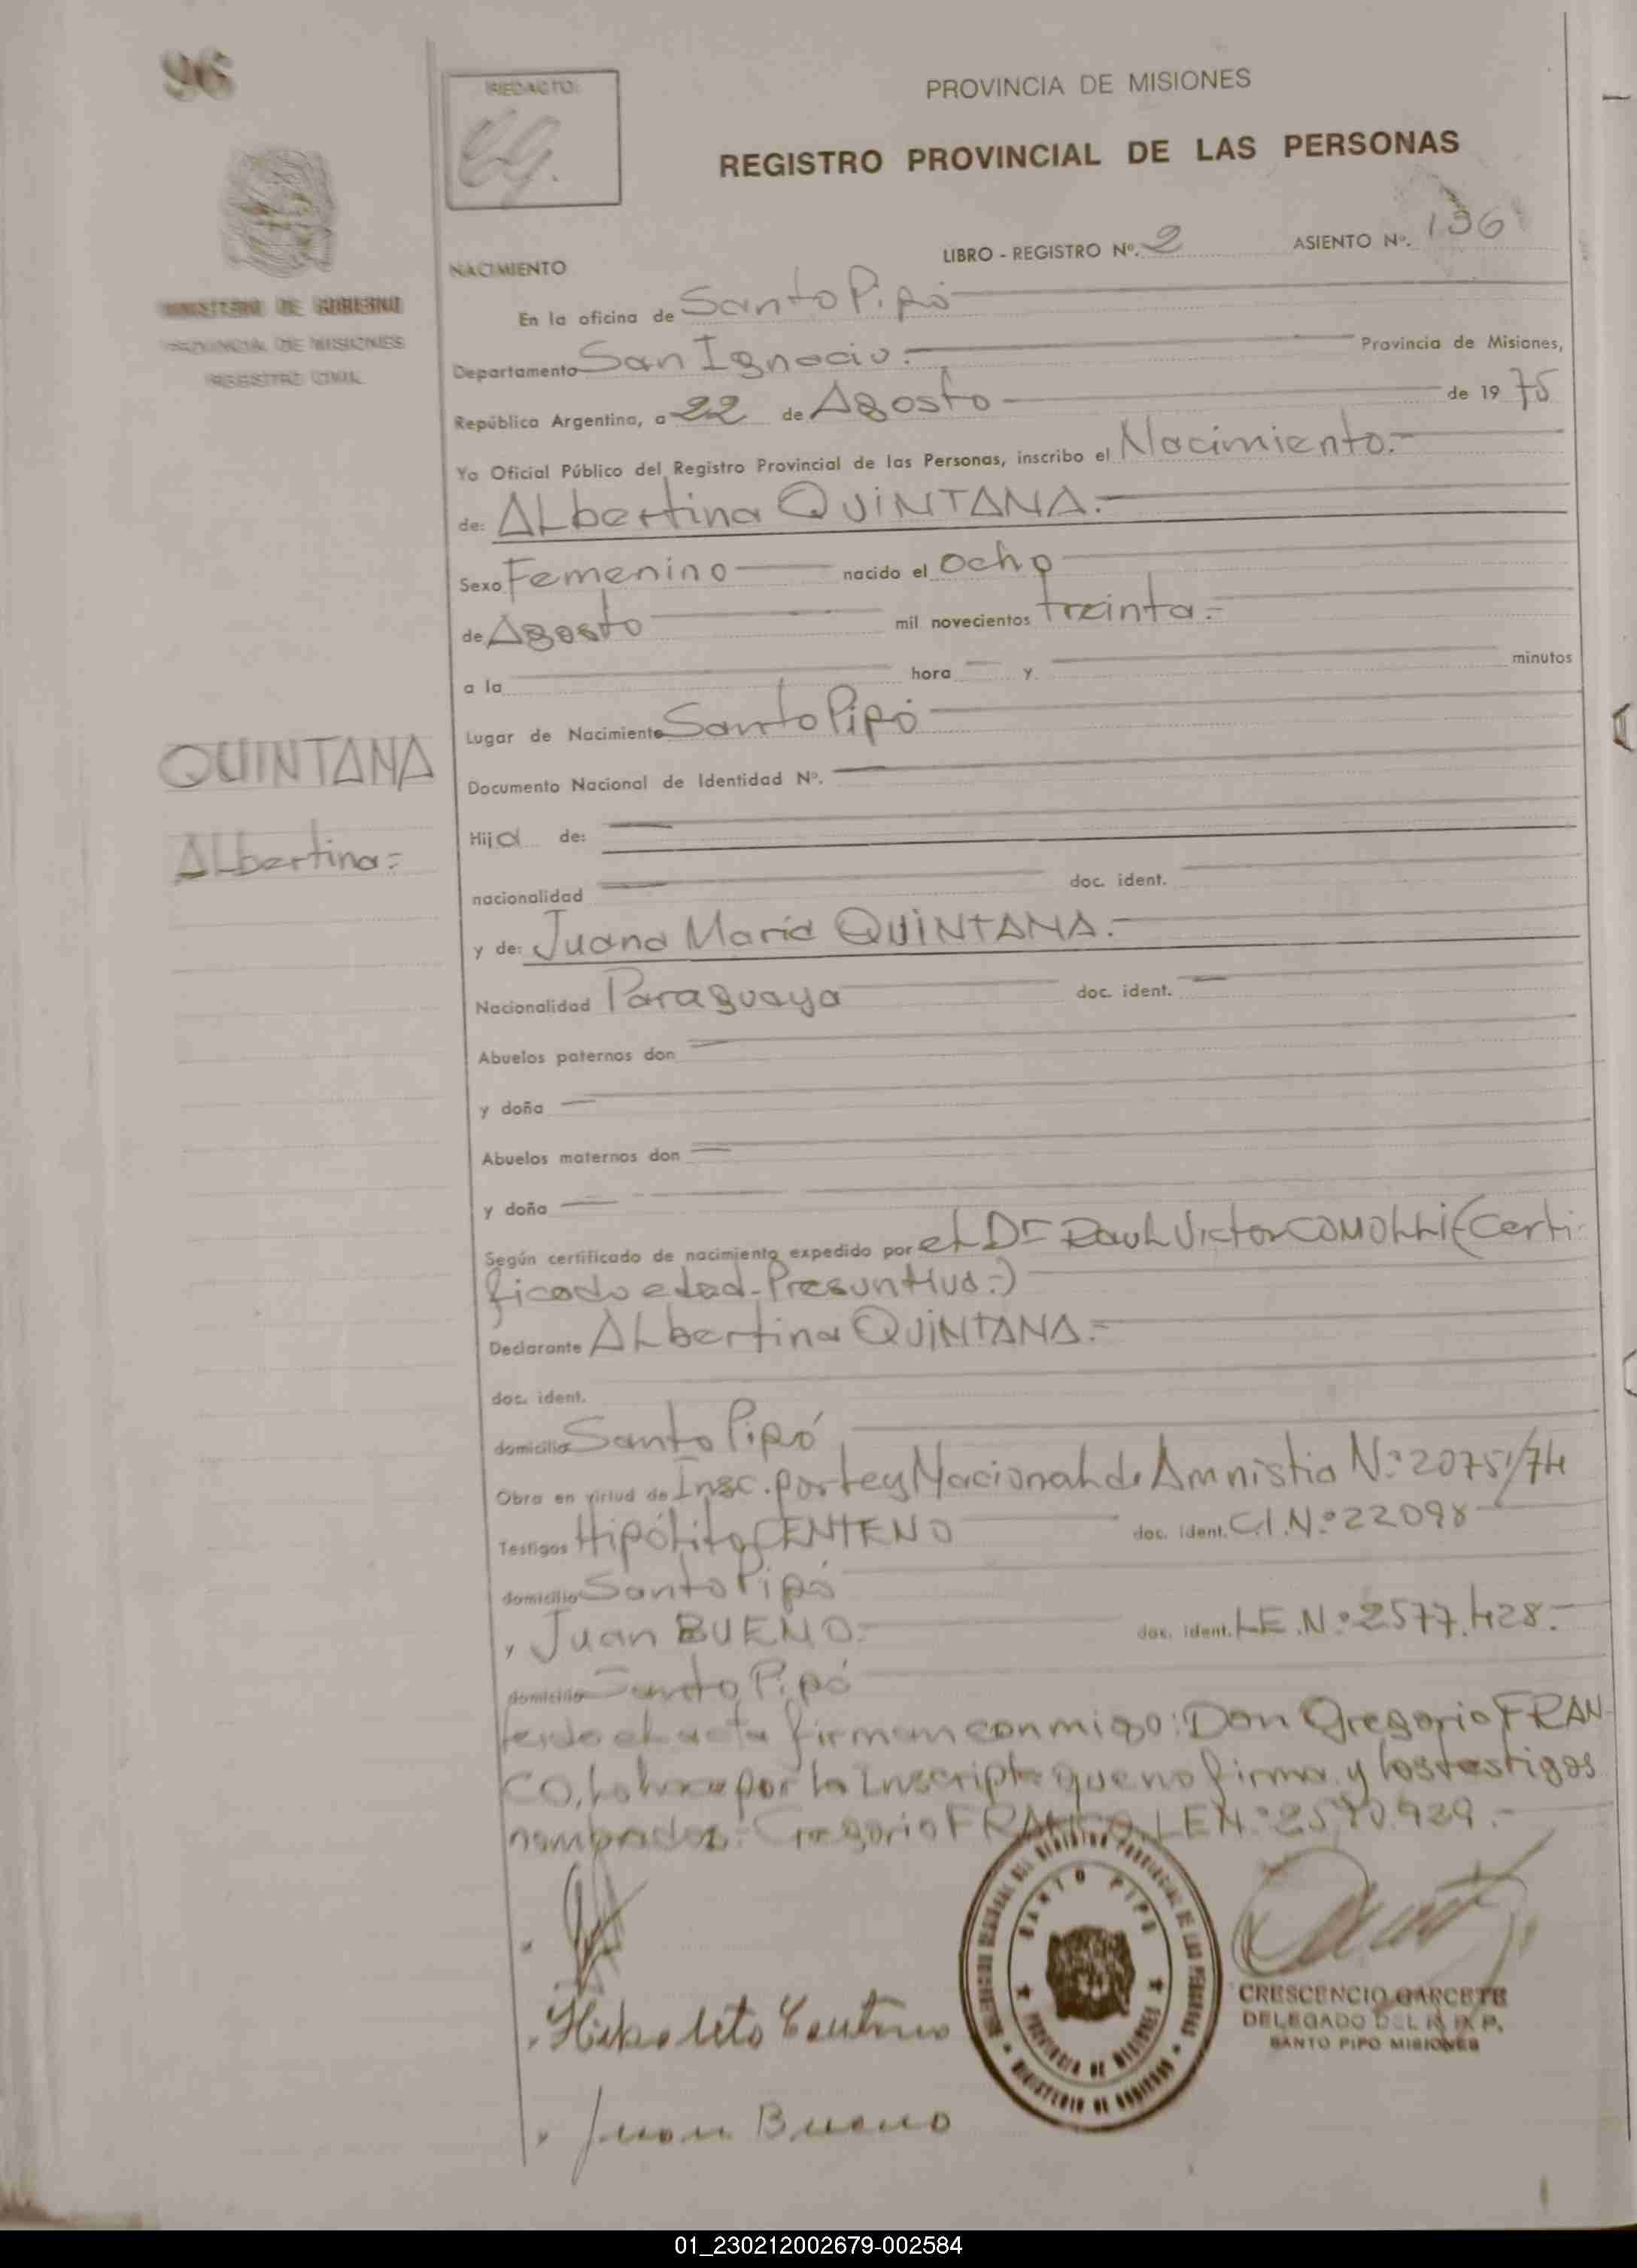 96
REDACTO:
PROVINCIA DE MISIONES
REGISTRO PROVINCIAL DE LAS PERSONAS
LIBRO - REGISTRO Nº. 2 ASIENTO Nº. 136
NACIMIENTO
MINISTERIO DE GOBIERNO
PROVINCIA DE MISIONES
REGISTRO CIVIL
En la oficina de Santo Pipó
Departamento San Ignacio.- Provincia de Misiones,
República Argentina, a 22 de Agosto de 19 75
Yo Oficial Público del Registro Provincial de las Personas, inscribo el Nacimiento.-
de: ALbertina QUiNTANA.-
Sexo Femenino nacido el Ocho
de Agosto mil novecientos treinta.-
a la hora y minutos
Lugar de Nacimiento Santo Pipó
QUINTANA
Documento Nacional de Identidad Nº.
Hija de:
ALbertina=
nacionalidad doc. ident.
y de: Juana María QUiNTANA.-
Nacionalidad Paraguaya doc. ident.
Abuelos paternos don
y doña
Abuelos maternos don
y doña
Según certificado de nacimiento expedido por eL Dr RauL Victor COMOLLi (Certi-
ficado edad-Presuntiva.-)
Declarante ALbertina QUiNTANA.=
doc. ident.
domicilio Santo Pipó
Obra en virtud de Insc. por Ley NacionaL de Amnistia N:º 2075/74
Testigos Hipólito CENTENO doc. ident. C.I.N:º 22098
domicilio Santo Pipó
, Juan BUENO.- doc. ident. L.E.N:º 2577.428.-
domicilio Santo Pipó
Leido eL acta firman conmigo: Don Gregorio FRAN-
CO, Lo hace por la Inscripta que no firma y los testigos
nombrados.- Gregorio FRANCO. L.E.N:º
Hipolito Centeno
Juan Bueno
SANTO PIPO
PROVINCIA DE MISIONES
MINISTERIO DE GOBIERNO
CRESCENCIO GARCETE
DELEGADO DEL R. P. P.
SANTO PIPO MISIONES
01_230212002679-002584